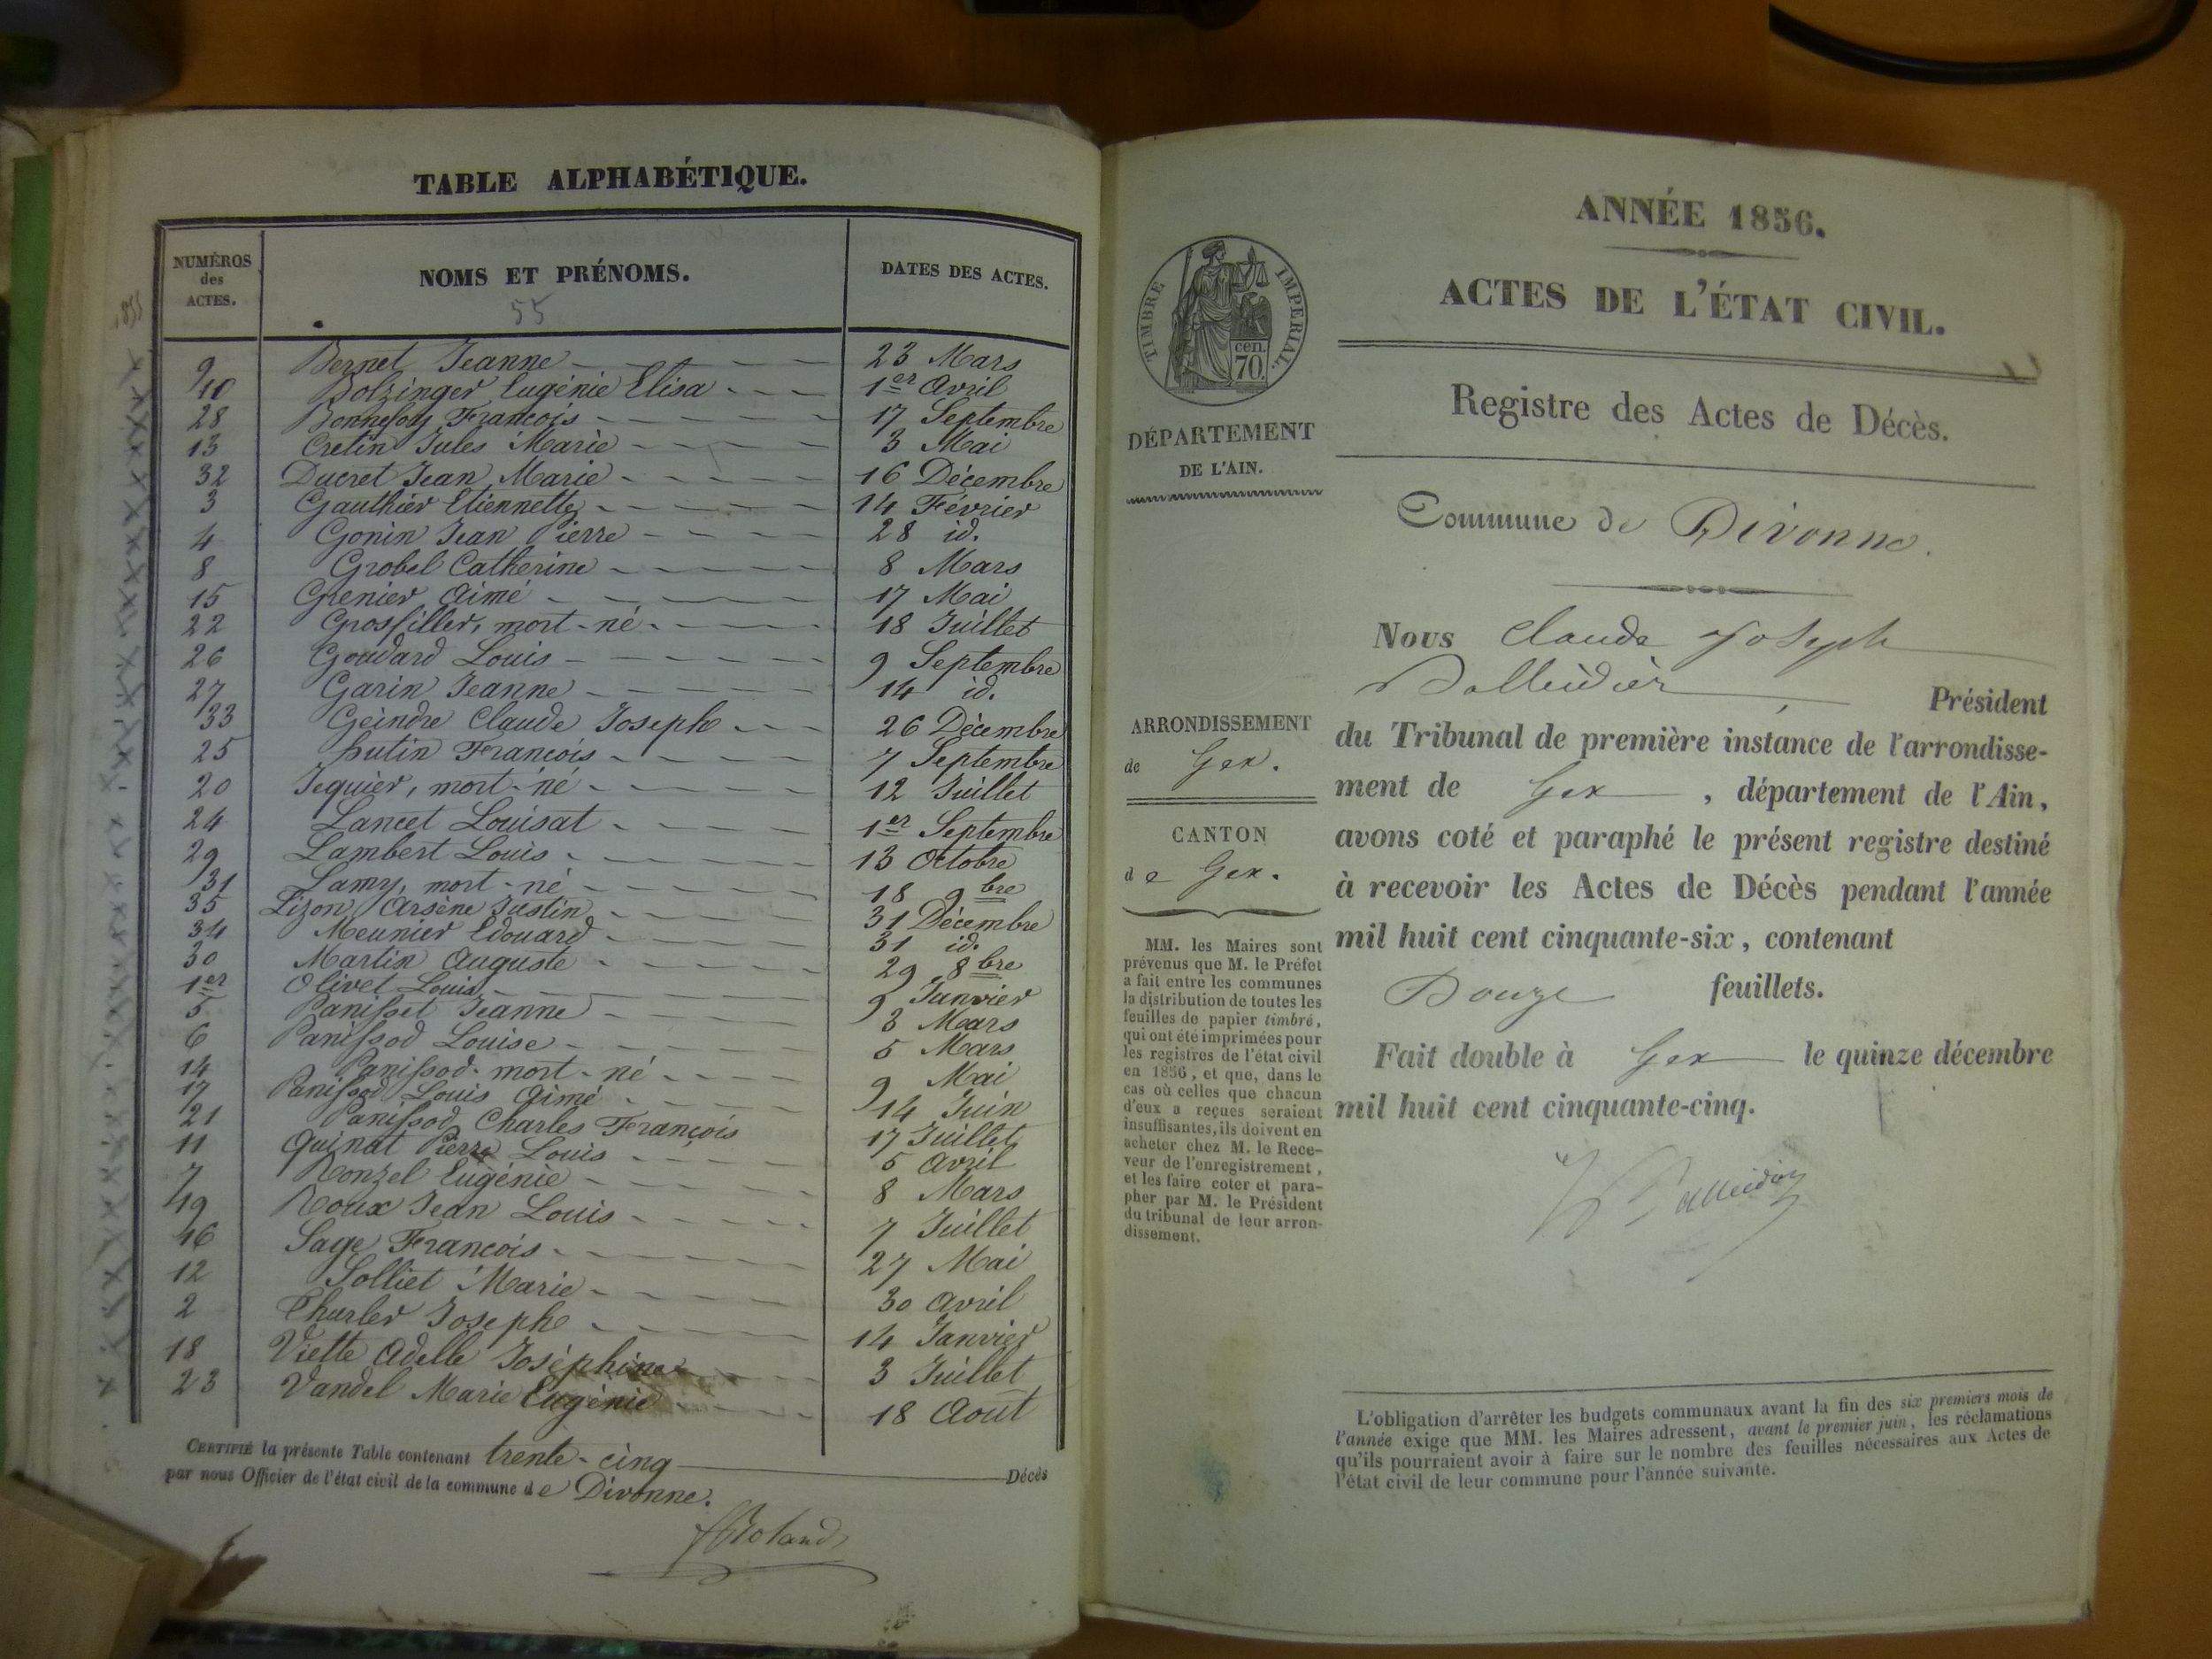 TABLE ALPHABÉTIQUE.
NUMÉROS
des
ACTES.
NOMS ET PRÉNOMS.
55
DATES DES ACTES.
1855
9 Bernet Jeanne 23 Mars
10 Bolzinger Eugénie Elisa 1er Avril
28 Bonnefoy François 17 Septembre
13 Cretin Jules Marie 3 Mai
32 Ducret Jean Marie 16 Décembre
3 Gauthier Etiennette 14 Février
4 Gonin Jean Pierre 28 id.
8 Grobel Catherine 8 Mars
15 Grenier Aimé 17 Mai
22 Grosfiller, mort-né 18 Juillet
26 Goudard Louis 9 Septembre
27 Garin Jeanne 14 id.
33 Geindre Claude Joseph 26 Décembre
25 hutin François 7 Septembre
20 Jequier, mort-né 12 Juillet
24 Lancet Louisat 1er Septembre
29 Lambert Louis 13 Octobre
31 Lamy, mort-né 18 9bre
35 Lizon Arsène Justin 31 Décembre
34 Meunier Edouard 31 id.
30 Martin Auguste 29 8bre
1er Olivet Louis 9 Janvier
5 Panisset Jeanne 3 Mars
6 Panissod Louise 5 Mars
14 Panissod mort-né 9 Mai
17 Panissod Louis Aimé 14 Juin
21 Panissod Charles François 17 Juillet
11 Quinat Pierre Louis 5 Avril
7 Ronzel Eugénie 8 Mars
19 Roux Jean Louis 7 Juillet
16 Sage François 27 Mai
12 Solliet Marie 30 Avril
2 Thurler Joseph 14 Janvier
18 Viette Adelle Joséphine 3 Juillet
23 Vandel Marie Eugénie 18 Août
CERTIFIÉ la présente Table contenant trente-cinq Décès
par nous Officier de l'état civil de la commune de Divonne.
Roland
ANNÉE 1856.
ACTES DE L'ÉTAT CIVIL.
Registre des Actes de Décès.
TIMBRE IMPERIAL.
cen.
70.
DÉPARTEMENT
DE L'AIN.
Commune de Divonne.
ARRONDISSEMENT
de Gex.
CANTON
de Gex.
MM. les Maires sont
prévenus que M. le Préfet
a fait entre les communes
la distribution de toutes les
feuilles de papier timbré,
qui ont été imprimées pour
les registres de l'état civil
en 1856, et que, dans le
cas où celles que chacun
d'eux a reçues seraient
insuffisantes, ils doivent en
acheter chez M. le Rece-
veur de l'enregistrement,
et les faire coter et para-
pher par M. le Président
du tribunal de leur arron-
dissement.
Nous Claude Joseph
Balleidier Président
du Tribunal de première instance de l'arrondisse-
ment de Gex, département de l'Ain,
avons coté et paraphé le présent registre destiné
à recevoir les Actes de Décès pendant l'année
mil huit cent cinquante-six, contenant
Douze feuillets.
Fait double à Gex le quinze décembre
mil huit cent cinquante-cinq.
Balleidier
L'obligation d'arrêter les budgets communaux avant la fin des six premiers mois de
l'année exige que MM. les Maires adressent, avant le premier juin, les réclamations
qu'ils pourraient avoir à faire sur le nombre des feuilles nécessaires aux Actes de
l'état civil de leur commune pour l'année suivante.